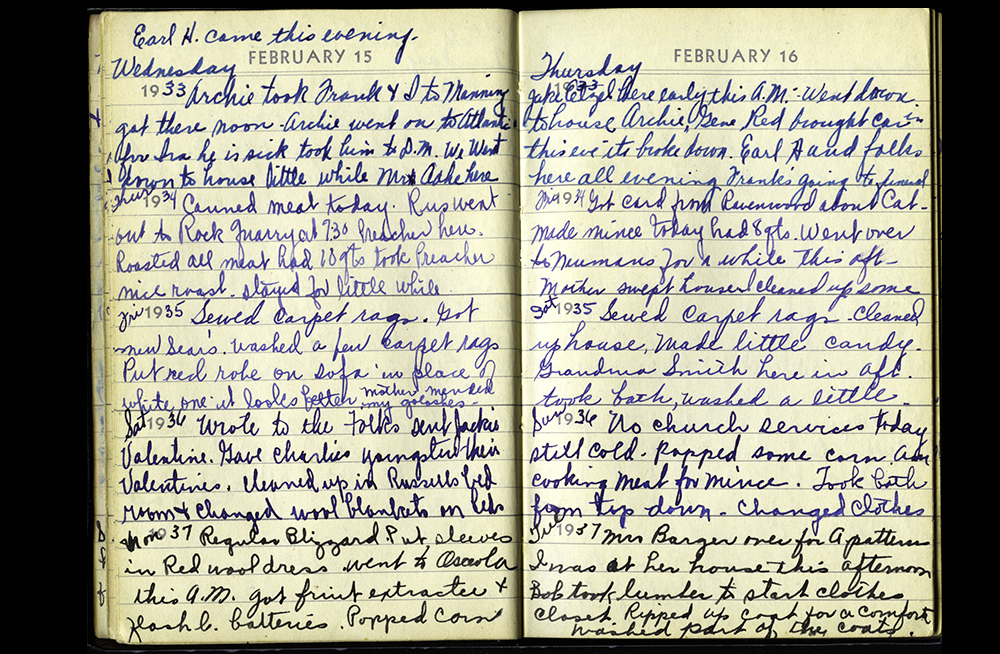 Earl H. came this evening.
FEBRUARY 15
Wednesday
1933 Archie took Frank & I to Manning
got there noon - Archie went on to Atlantic
for Ira he is sick took him to D.M. We Went
down to house little while Mrs Aske here
Thur 1934 Canned meat today. Rus went
out to Rock Quarry at 7:30 Preacher here.
Roasted all meat had 10 qts took Preacher
nice roast. stayed for little while.
Fri 1935 Sewed carpet rags. Got
new Sears. washed a few carpet rags
Put red robe on sofa in place of
white one it looks better mother mended
my goloshes -
Sat 1936 Wrote to the Folks sent Jackie
Valentine. Gave Charlies youngsters their
Valentines. Cleaned up in Russells bed
room & changed wool blankets on beds
Mon 1937 Regular Blizzard Put sleeves
in Red wool dress went to Osceola
this A.M. got fruit extractor &
flash l. batteries. Popped Corn
FEBRUARY 16
Thursday
1933 Jake here early this A.M. - Went down
to house Archie, Gene Red brought car in
this eve its broke down. Earl H and folks
here all evening Frank's going to funeral
Fri 1934 Got card from Ravenwood about Cat-
made mince today had 8 qts. Went over
to Neumans for a while this aft -
Mother swept house I cleaned up some
Sat 1935 Sewed Carpet rags - Cleaned
up house, Made little candy.
Grandma Smith here in aft.
took bath, washed a little.
Sun 1936 No church services today
still cold. Popped some corn. Am
cooking meat for mince. Took bath
from tip down. Changed clothes
Tue 1937 Mrs Barger over for A pattern
I was at her house this afternoon
Bob took lumber to start clothes
closet. Ripped up coat for a comfort
washed part of the coats.